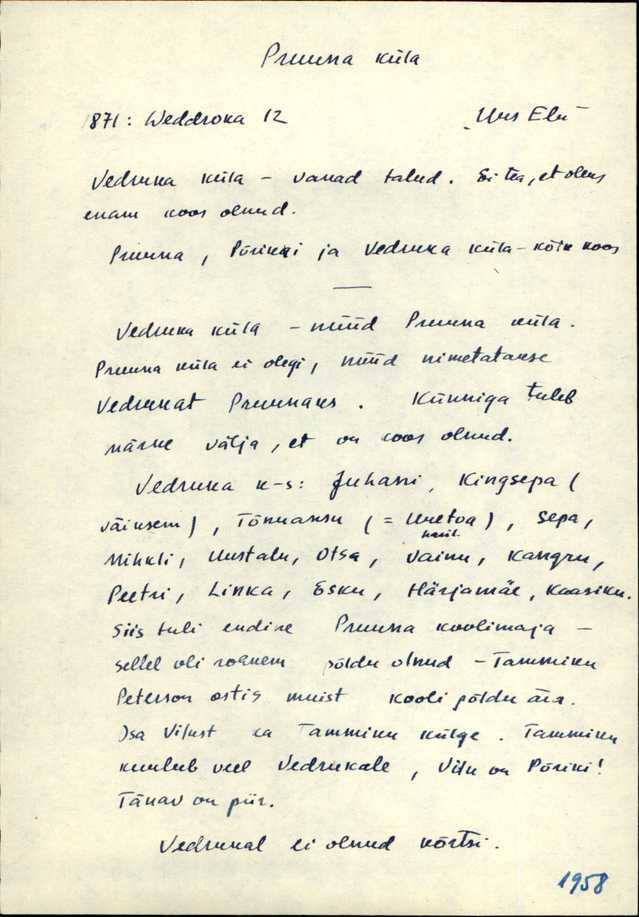 Pruuna küla
1871: Weddroka 12 "Uus Elu"
Vedruka küla – vanad talud. Ei tea, et oleks
enam koos olnud.
Pruuna, Põriki ja Vedruka küla – kõik koos
Vedruka küla – nüüd Pruuna küla.
Pruuna küla ei olegi, nüüd nimetatakse
Vedrukat Pruunaks. Künniga tuleb
näsne välja, et on koos olnud.
Vedruka k-s: Juhani, Kingsepa (
väiksem), Tõnuansu (= Uuetoa), Sepa,
Mihkli, Uustalu, Otsa, Vainu, Kangru,
Peetri, Linka, Esku, Härjamäe, Kaasiku.
Siis tuli endine Pruuna koolimaja –
sellel oli rohkem põldu olnud – Tammiku
Peterson ostis muist kooli põldu ära.
Osa Vilust ka Tammiku külge. Tammiku
kuulub veel Vedrukale, Vilu on Põriki!
Tänav on piir.
Vedrukal ei olnud kõrtsi.
1958